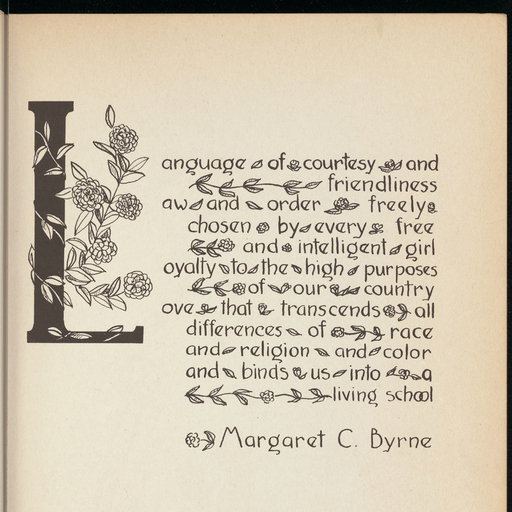 L
anguage of courtesy and
friendliness
aw and order freely
chosen by every free
and intelligent girl
oyalty to the high purposes
of our country
ove that transcends all
differences of race
and religion and color
and binds us into a
living school
Margaret C. Byrne